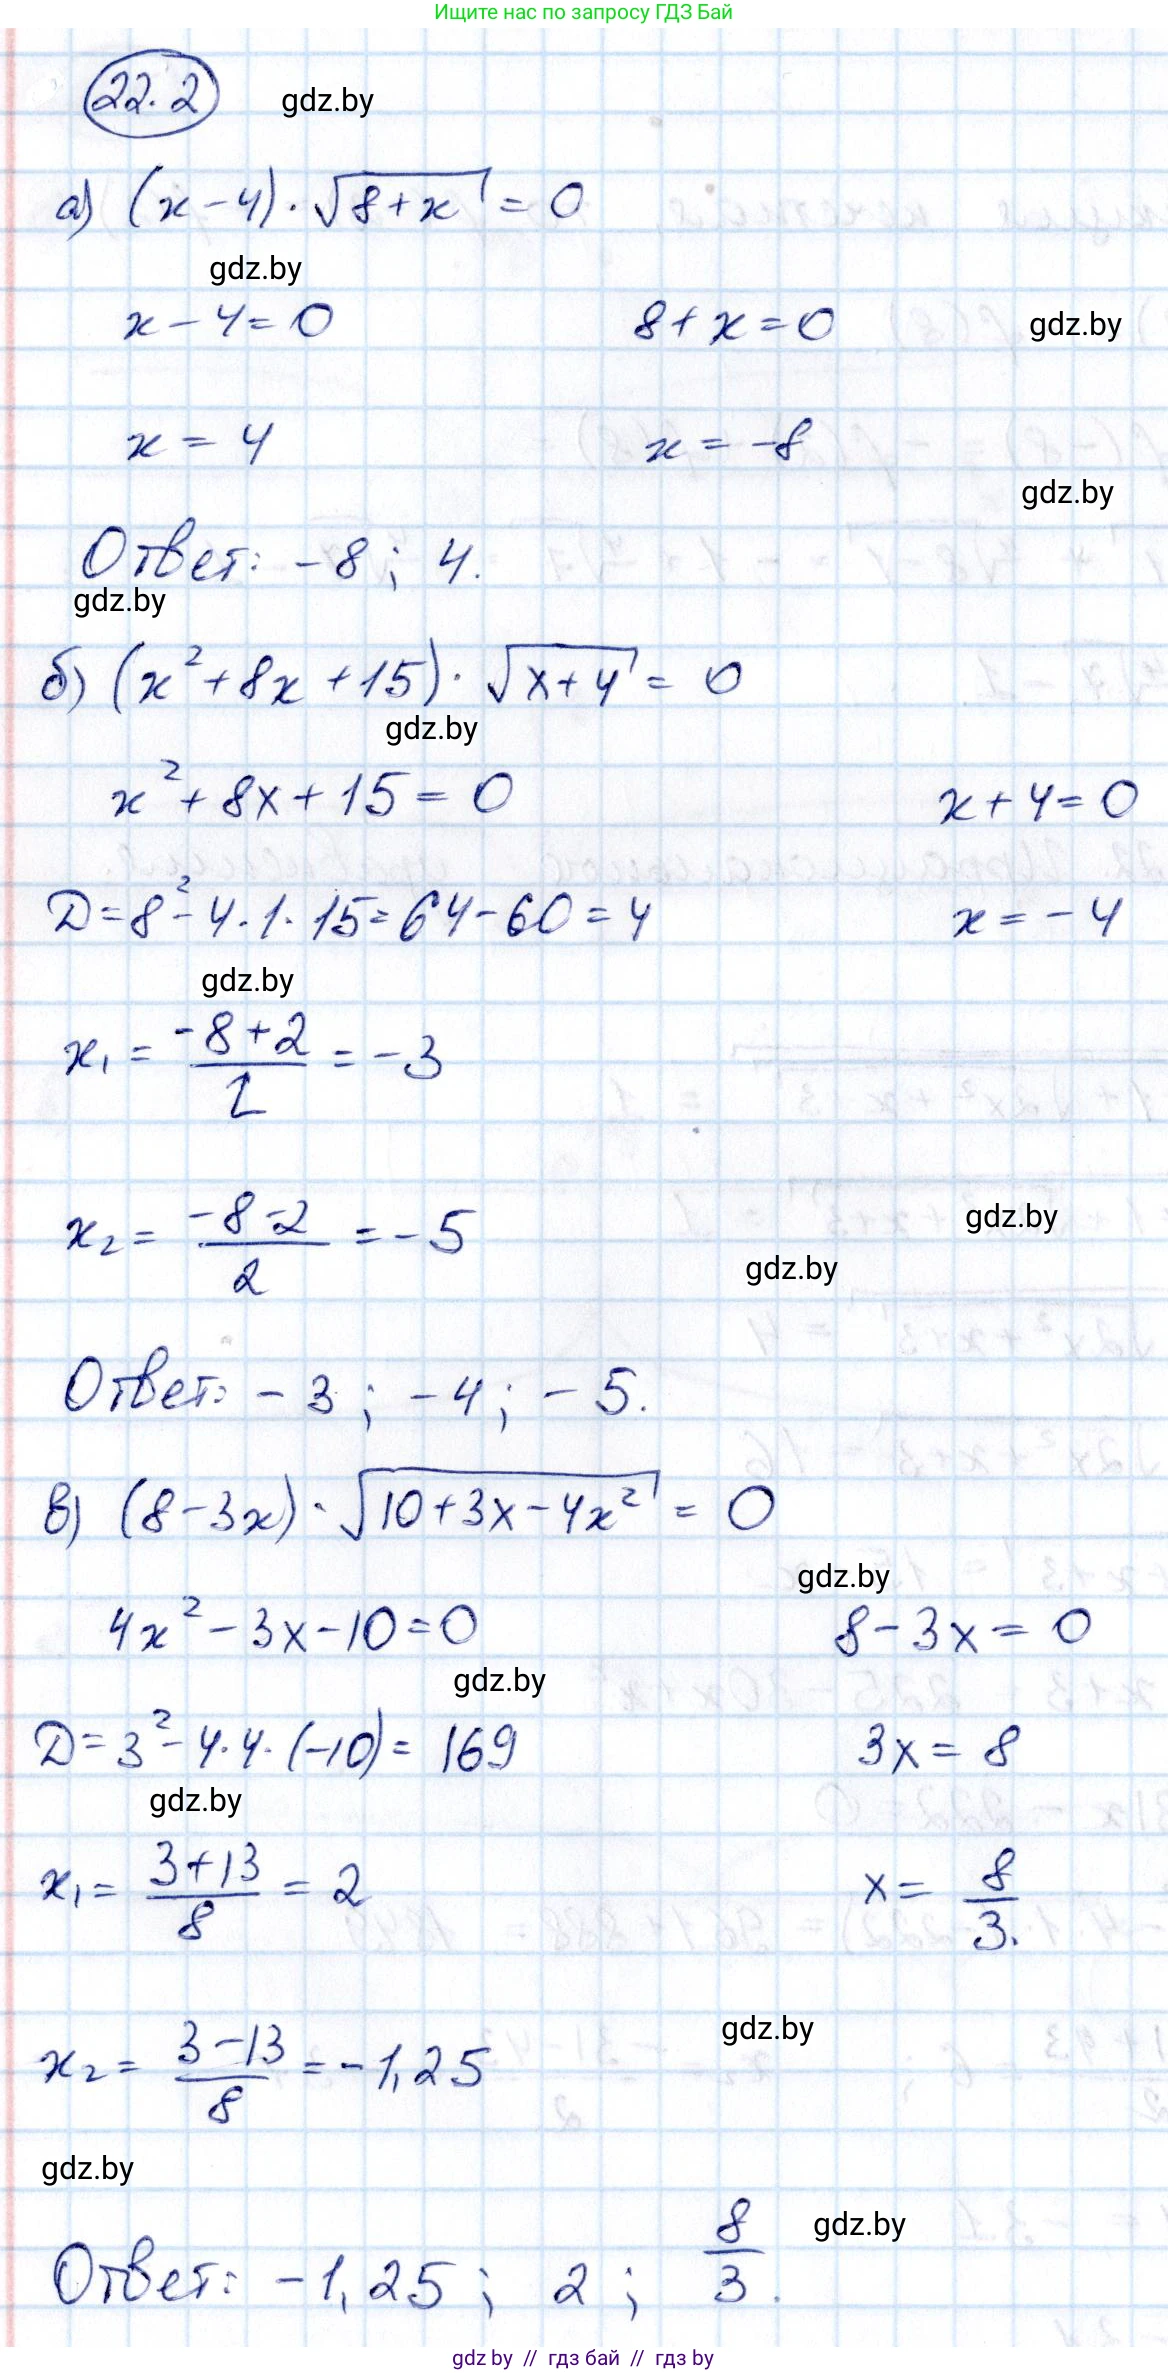 Ищите нас по запросу ГДЗ Бай
22.2 gdz.by
а) (x-4)·√(8+x) = 0
gdz.by
x-4=0 8+x=0 gdz.by
x = 4 x = -8
gdz.by
Ответ: -8; 4.
gdz.by
б) (x²+8x+15)·√(x+4) = 0
gdz.by
x²+8x+15=0 x+4=0
Д=8²-4·1·15=64-60=4 x=-4
gdz.by
x₁ = (-8+2)/2 = -3
x₂ = (-8-2)/2 = -5 gdz.by
gdz.by
Ответ: -3; -4; -5.
в) (8-3x)·√(10+3x-4x²) = 0
gdz.by
4x²-3x-10=0 8-3x=0
gdz.by
Д=3²-4·4·(-10)=169 3x=8
gdz.by
x₁= (3+13)/8 = 2 x= 8/3.
gdz.by
x₂= (3-13)/8 = -1,25
gdz.by
gdz.by
Ответ: -1,25; 2; 8/3.
gdz.by // гдз бай // гдз by